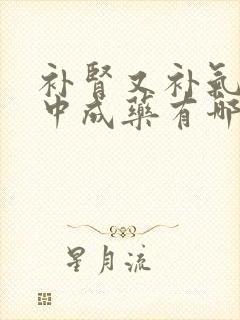 补肾又补氣
中成藥有哪
星月流